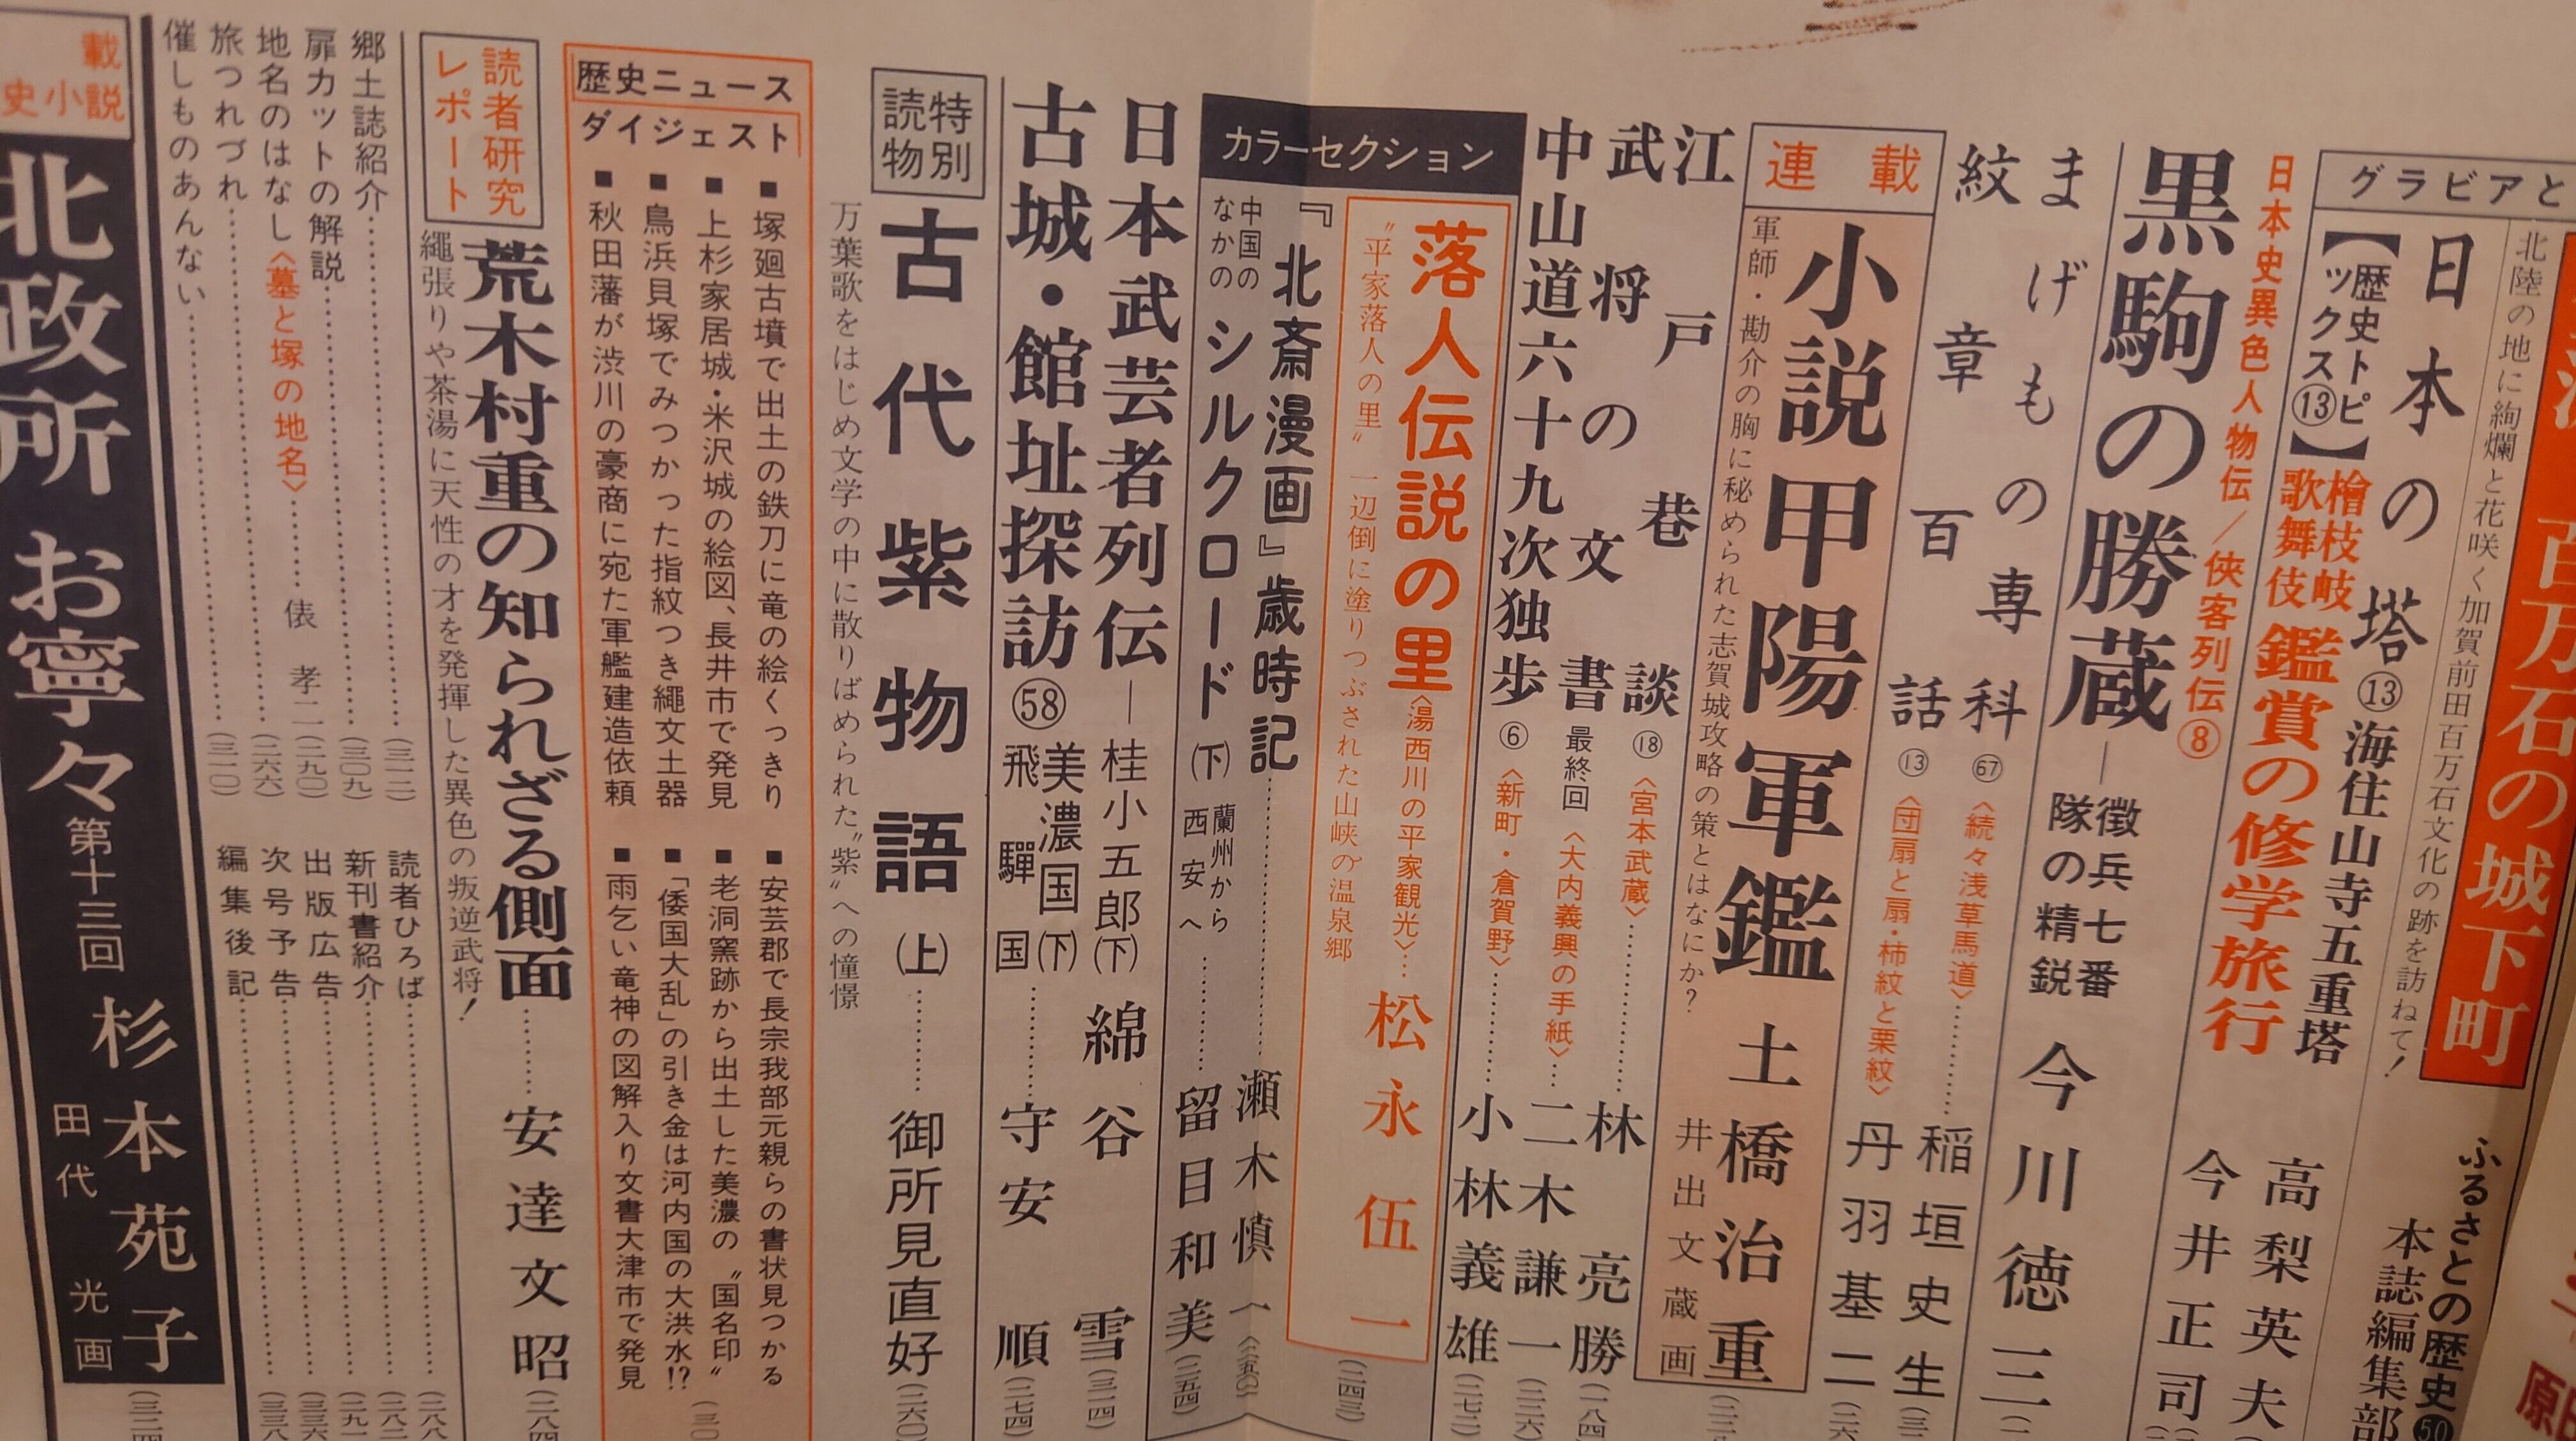 百万石の城下町
北陸の地に絢爛と花咲く加賀前田百万石文化の跡を訪ねて!
ふるさとの歴史㊿
本誌編集部
グラビアと
日本の塔⑬海住山寺五重塔
高梨英夫
【歴史トピックス⑬】
檜枝岐歌舞伎鑑賞の修学旅行
今井正司
日本史異色人物伝/俠客列伝⑧
黒駒の勝蔵―徴兵七番隊の精鋭
今川徳三
まげもの専科㊿〈続々浅草馬道〉……稲垣史生
紋章百話⑬〈団扇と扇・柿紋と栗紋〉丹羽基二
連載
小説甲陽軍鑑
土橋治重
井出文蔵画
軍師・勘介の胸に秘められた志賀城攻略の策とはなにか?
江戸巷談⑱〈宮本武蔵〉……林亮勝(一八四)
武将の文書最終回〈大内義興の手紙〉…二木謙一(二二六)
中山道六十九次独歩⑥〈新町・倉賀野〉……小林義雄(二七二)
カラーセクション
落人伝説の里〈湯西川の平家観光〉…松永伍一(二四三)
〝平家落人の里〟一辺倒に塗りつぶされた山峡の温泉郷
『北斎漫画』歳時記……瀬木慎一(二五〇)
中国のなかのシルクロード(下)蘭州から西安へ……留目和美(二五四)
日本武芸者列伝―桂小五郎(下)綿谷雪(三一四)
古城・館址探訪㊽美濃国(下)飛驒国……守安順(二七四)
特別読物
古代紫物語(上)……御所見直好(二六〇)
万葉歌をはじめ文学の中に散りばめられた〝紫〟への憧憬
歴史ニュースダイジェスト
■塚廻古墳で出土の鉄刀に竜の絵くっきり
■上杉家居城・米沢城の絵図、長井市で発見
■鳥浜貝塚でみつかった指紋つき縄文土器
■秋田藩が渋川の豪商に宛た軍艦建造依頼
■安芸郡で長宗我部元親らの書状見つかる
■老洞窯跡から出土した美濃の〝国名印〟
■「倭国大乱」の引き金は河内国の大洪水!?
■雨乞い竜神の図解入り文書大津市で発見
読者研究レポート
荒木村重の知られざる側面……安達文昭
縄張りや茶湯に天性の才を発揮した異色の叛逆武将!
郷土誌紹介……(三一二)
扉カットの解説……(三〇九)
地名のはなし〈墓と塚の地名〉……俵孝二(二九〇)
旅つれづれ……(二六六)
催しものあんない……(三一〇)
読者ひろば……(二八八)
新刊書紹介……(二八二)
出版広告……(二九一)
次号予告……(三三六)
編集後記……(三三八)
載
史小説
北政所お寧々第十三回
杉本苑子
田代光画